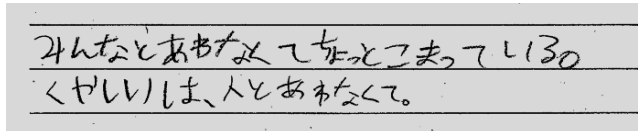 みんなとあわなくてちょっとこまっている。
くやしいは、人とあわなくて。